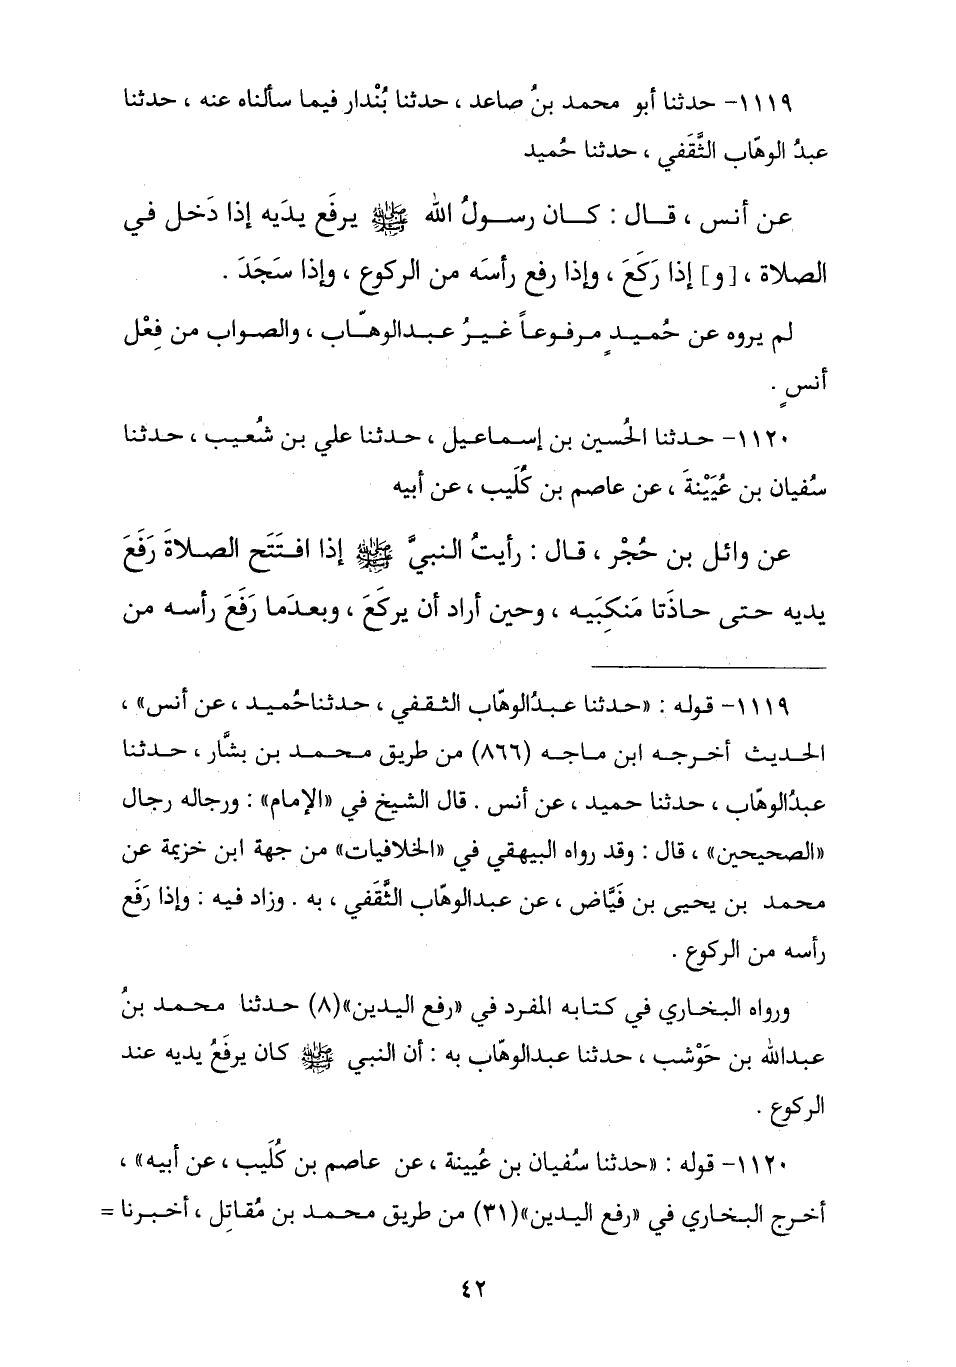 ١١١٩- حدثنا أبو محمد بنُ صاعد ، حدثنا بُنْدار فيما سألناه عنه ، حدثنا
عبدُ الوهّاب الثَّقَفي ، حدثنا حُميد
عن أنس ، قال : كان رسولُ الله ﷺ يرفَع يدَيه إذا دَخل في
الصلاة ، [و] إذا رَكَعَ ، وإذا رفع رأسَه من الركوع ، وإذا سَجَدَ .
لم يروه عن حُميدٍ مرفوعاً غيرُ عبدالوهّاب ، والصواب من فِعْل
أنسٍ .
١١٢٠- حدثنا الحُسين بن إسماعيل ، حدثنا علي بن شُعيب ، حدثنا
سُفيان بن عُيَيْنةَ ، عن عاصم بن كُلَيب ، عن أبيه
عن وائل بن حُجْر ، قال : رأيتُ النبيَّ ﷺ إذا افتَتَح الصلاةَ رَفَعَ
يديه حتى حاذَتا مَنكِبَيه ، وحين أراد أن يركَعَ ، وبعدَما رَفَعَ رأسه من
١١١٩- قوله : «حدثنا عبدُالوهّاب الثقفي ، حدثناحُميد ، عن أنس» ،
الحديث أخرجه ابن ماجه (٨٦٦) من طريق محمد بن بشَّار ، حدثنا
عبدُالوهّاب ، حدثنا حميد ، عن أنس . قال الشيخ في «الإمام» : ورجاله رجال
«الصحيحين» ، قال : وقد رواه البيهقي في «الخلافيات» من جهة ابن خزيمة عن
محمد بن يحيى بن فَيَّاض ، عن عبدالوهّاب الثَّقَفي ، به . وزاد فيه : وإذا رَفَع
رأسه من الركوع .
ورواه البخاري في كتابه المفرد في «رفع اليدين»(٨) حدثنا محمد بنُ
عبدالله بن حَوْشب ، حدثنا عبدالوهّاب به : أن النبي ﷺ كان يرفَعُ يديه عند
الركوع .
١١٢٠- قوله : «حدثنا سُفيان بن عُيينة ، عن عاصم بن كُلَيب ، عن أبيه» ،
أخرج البخاري في «رفع اليدين»(٣١) من طريق محمد بن مُقاتِل ، أخبرنا =
٤٢